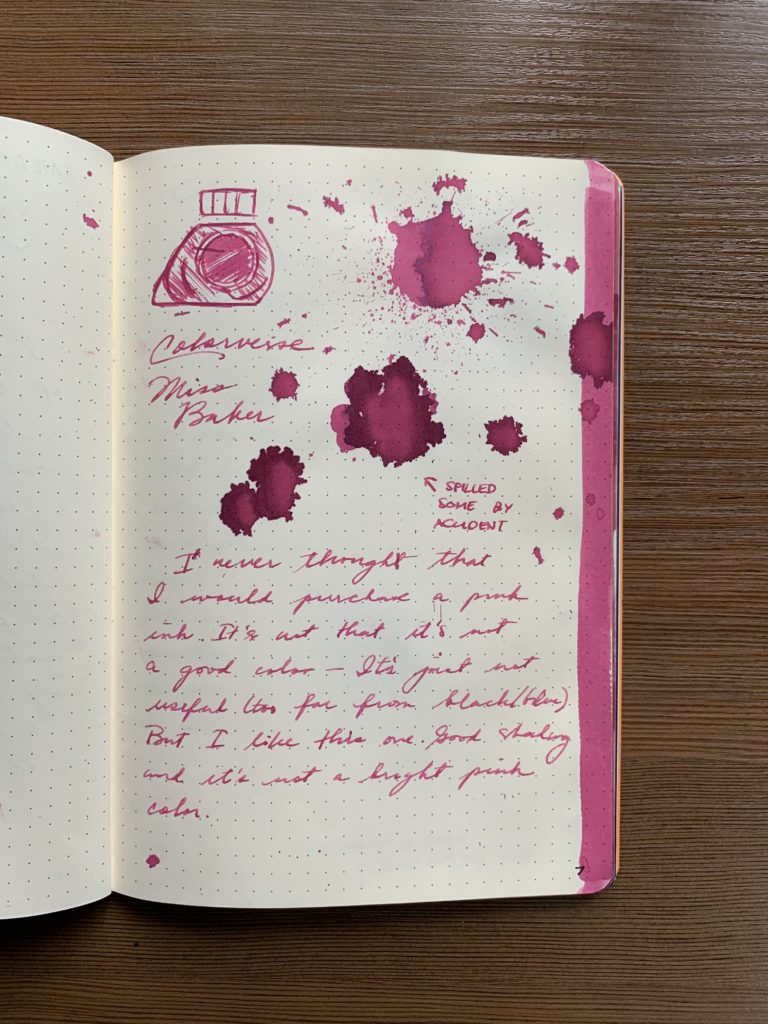 Colorverse
Miss
Baker
SPILLED
SOME BY
ACCIDENT
I never thought that
I would purchase a pink
ink. It's not that it's not
a good color – It's just not
useful (too far from black/blue).
But I like this one. Good shading
and it's not a bright pink
color.
7